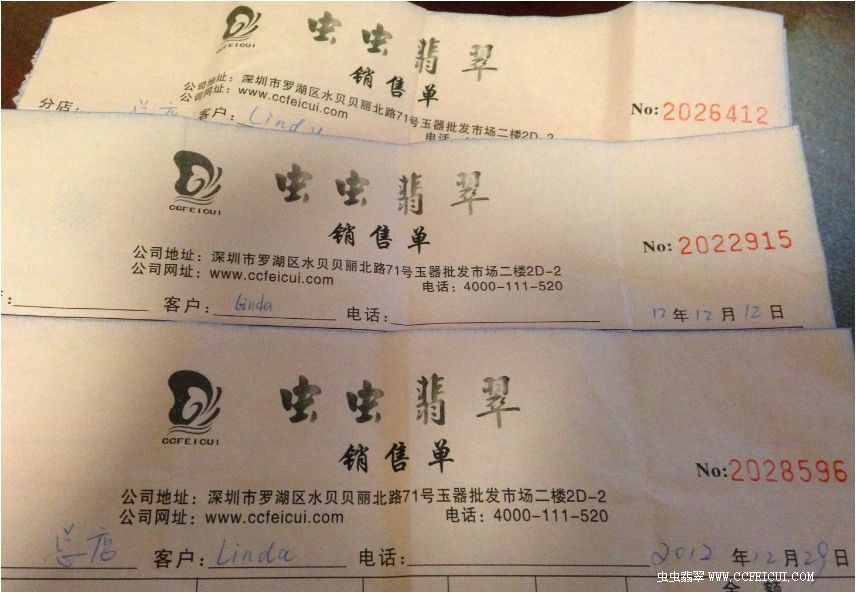 CCFEICUI
虫虫翡翠
销售单
公司地址：深圳市罗湖区水贝贝丽北路71号玉器批发市场二楼2D-2
公司网址：www.ccfeicui.com
No: 2026412
分店： 总店 客户： Linda
CCFEICUI
虫虫翡翠
销售单
No: 2022915
公司地址：深圳市罗湖区水贝贝丽北路71号玉器批发市场二楼2D-2
公司网址：www.ccfeicui.com 电话：4000-111-520
客户： Linda 电话： 12 年 12 月 12 日
CCFEICUI
虫虫翡翠
销售单
No: 2028596
公司地址：深圳市罗湖区水贝贝丽北路71号玉器批发市场二楼2D-2
公司网址：www.ccfeicui.com 电话：4000-111-520
总店 客户： Linda 电话： 2012 年 12 月 29 日
虫虫翡翠 WWW.CCFEICUI.COM